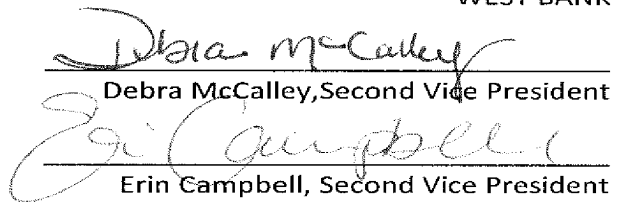 WEST BANK
Debra McCalley
Debra McCalley,Second Vice President
Erin Campbell
Erin Campbell, Second Vice President